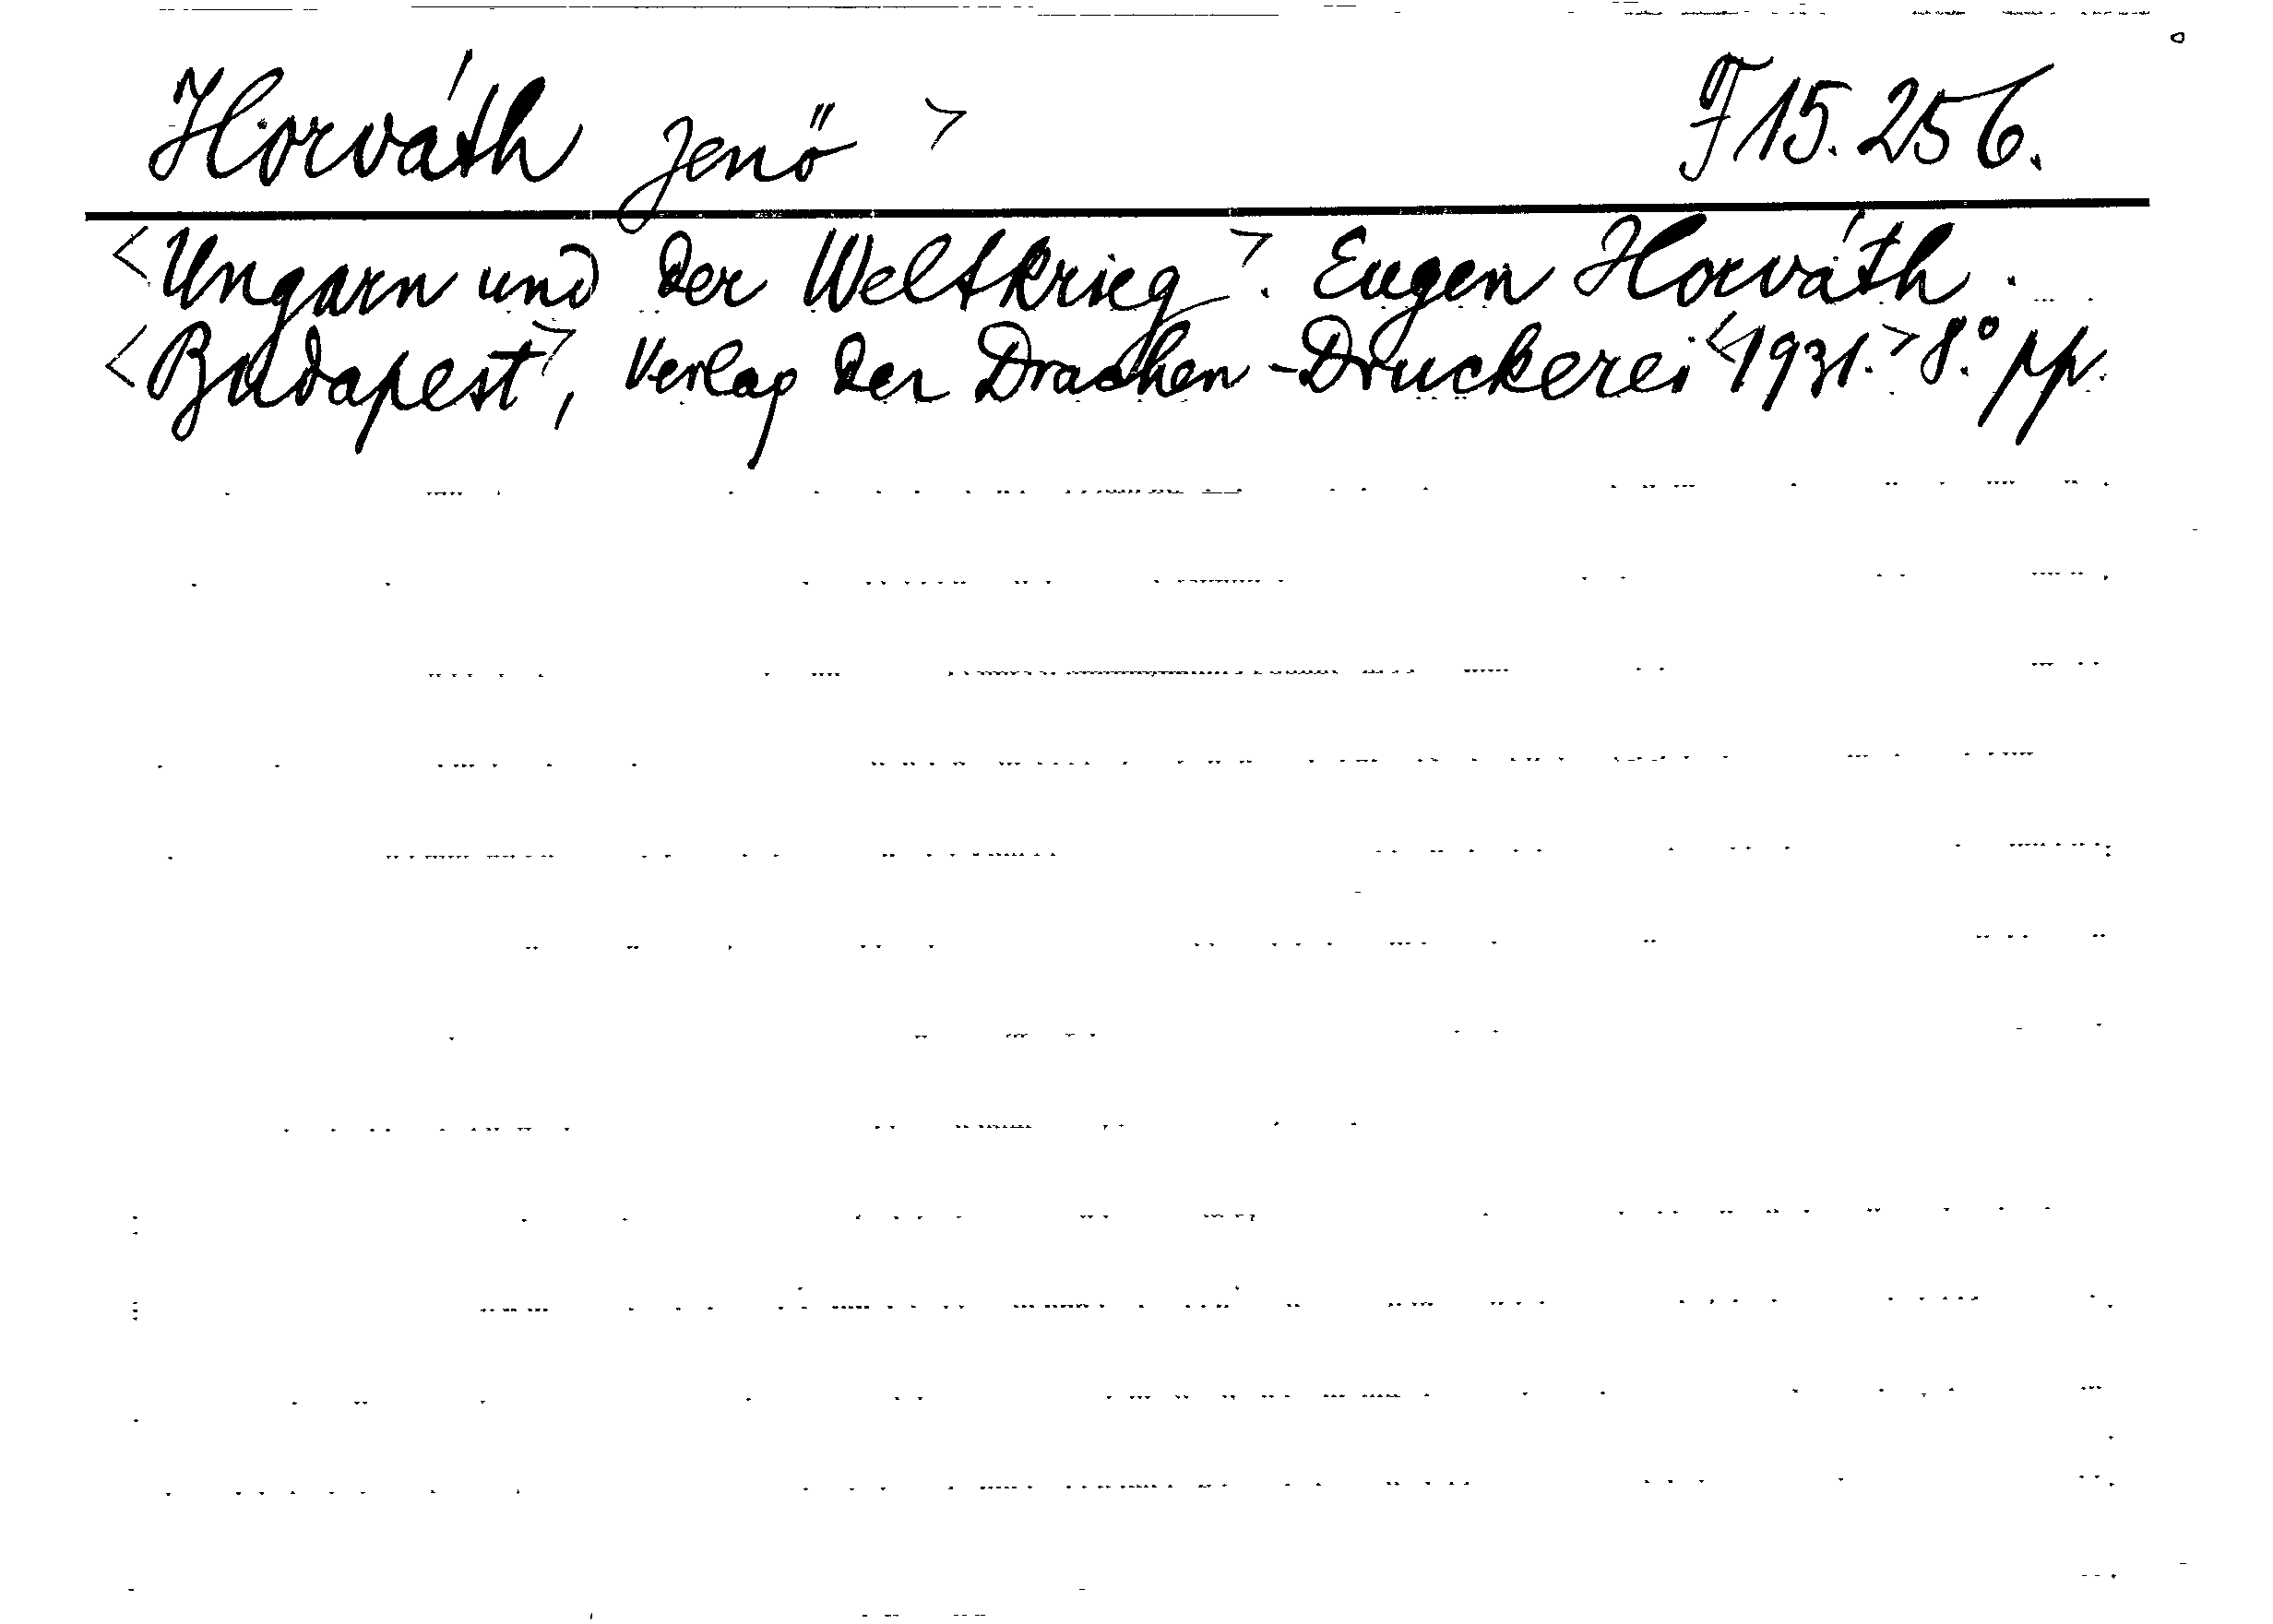 Horváth Jenő > F 15.256.
<Ungarn und der Weltkrieg>. Eugen Horváth.
<Budapest>, Verlag der Drachen-Druckerei <1931.> 8.° pp.